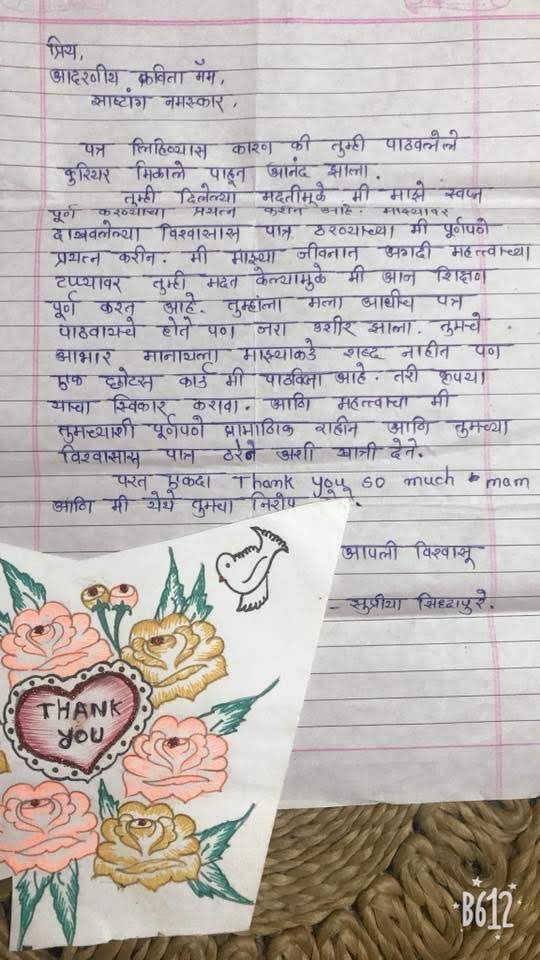 प्रिय,
आदरणीय कविता मॅम,
साष्टांग नमस्कार,
पत्र लिहिण्यास कारण की तुम्ही पाठवलेले
कुरियर मिळाले पाहून आनंद झाला.
तुम्ही दिलेल्या मदतीमूळे मी माझे स्वप्न
पूर्ण करण्याचा प्रयत्न करत आहे. माझ्यावर
दाखवलेल्या विश्वासास पात्र ठरण्याच्या मी पूर्णपणे
प्रयत्न करीन. मी माझ्या जीवनात अगदी महत्त्वाच्या
टप्प्यावर तुम्ही मदत केल्यामुळे मी आज शिक्षण
पूर्ण करत आहे. तुम्हांला मला आधीच पत्र
पाठवायचे होते पण जरा उशीर झाला. तुमचे
आभार मानायला माझ्याकडे शब्द नाहीत पण
एक छोटस कार्ड मी पाठविला आहे. तरी कृपया
याचा स्विकार करावा. आणि महत्वाचा मी
तुमच्याशी पूर्णपणे प्रामाणिक राहीन आणि तुमच्या
विश्वासास पात्र ठरेन अशी खात्री देते.
परत एकदा Thank you so much mam
आणि मी येथे तुमचा निरोप
आपली विश्वासू
- सुप्रीया
THANK
YOU
B612